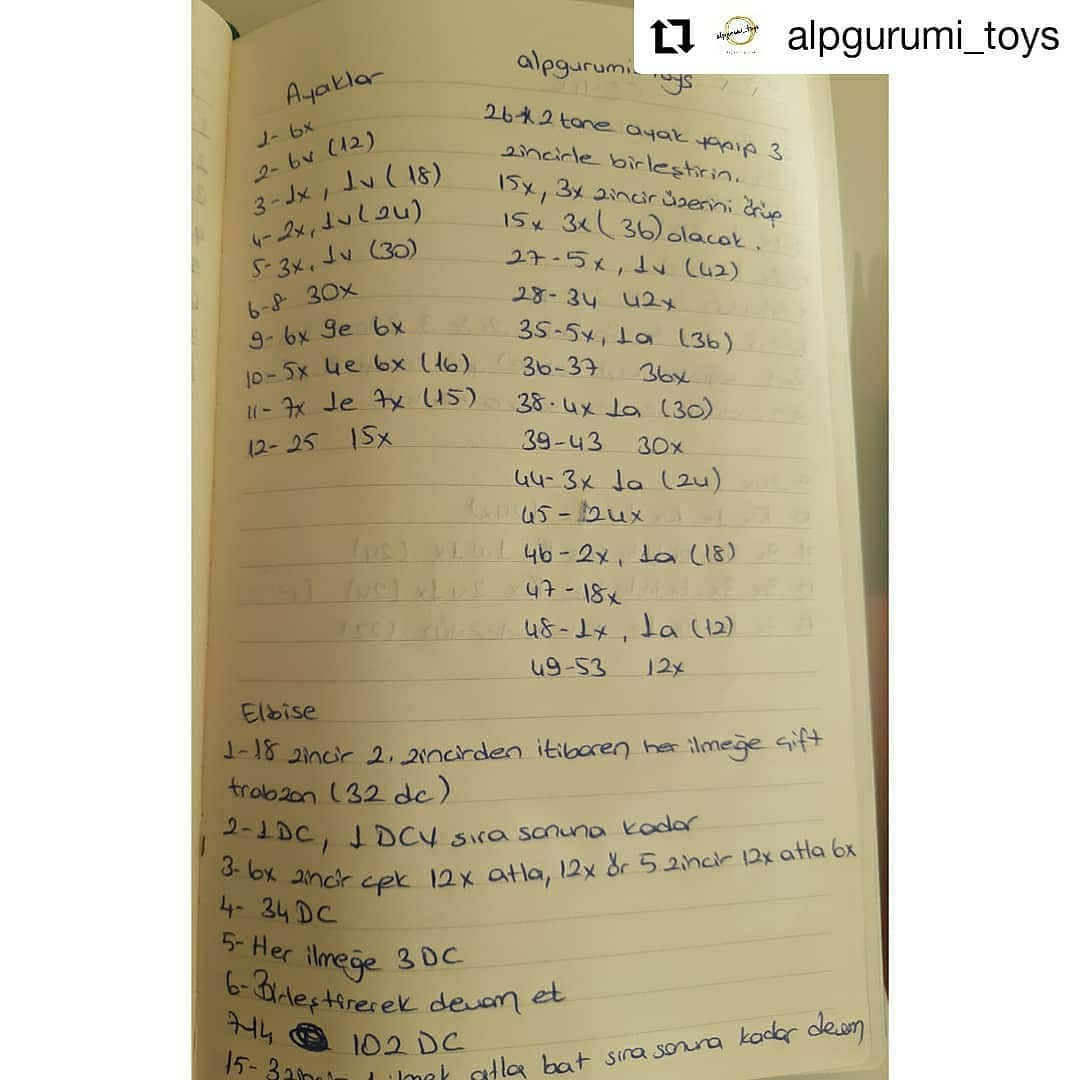 alpgurumi_toys
Ayaklar
1- 6x
2- 6v (12)
3- 1x, 1v (18)
4- 2x, 1v (24)
5- 3x, 1v (30)
6-8 30x
9- 6x 9e 6x
10- 5x 4e 6x (16)
11- 7x 1e 7x (15)
12- 25 15x
alpgurumi_toys
26- 2 tane ayak yapıp 3
zincirle birleştirin.
15x, 3x zincir üzerini örüp
15x 3x (36) olacak.
27- 5x, 1v (42)
28- 34 42x
35- 5x, 1a (36)
36-37 36x
38- 4x 1a (30)
39-43 30x
44- 3x 1a (24)
45- 24x
46- 2x, 1a (18)
47- 18x
48- 1x, 1a (12)
49-53 12x
Elbise
1- 18 zincir 2. zincirden itibaren her ilmeğe çift
trabzan (32 dc)
2- 1 DC, 1 DCV sıra sonuna kadar
3- 6x zincir çek 12x atla, 12x ör 5 zincir 12x atla 6x
4- 34 DC
5- Her ilmeğe 3 DC
6- Birleştirerek devam et
7-14 102 DC
15- 3 atla bat sıra sonuna kadar devam